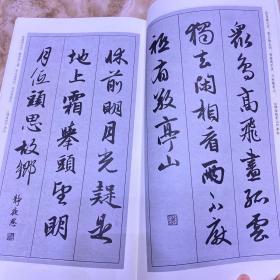 众鸟高飞尽孤云
獨去闲相看两不厌
祗有敬亭山
床前明月光疑是
地上霜舉頭望明
月低頭思故鄉
静夜思